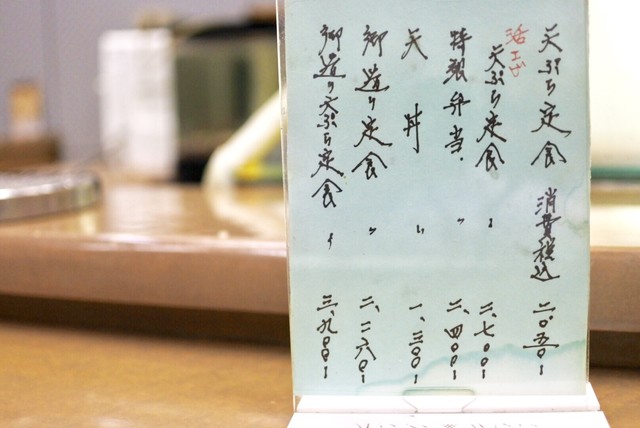 天ぷら定食 消費税込 二、〇五〇ー
活エビ
天ぷら定食 〃 二、七〇〇ー
特製弁当 〃 二、四〇〇ー
天丼 〃 一、三〇〇ー
御造り定食 〃 二、一六〇ー
御造り天ぷら定食 〃 三、九〇〇ー